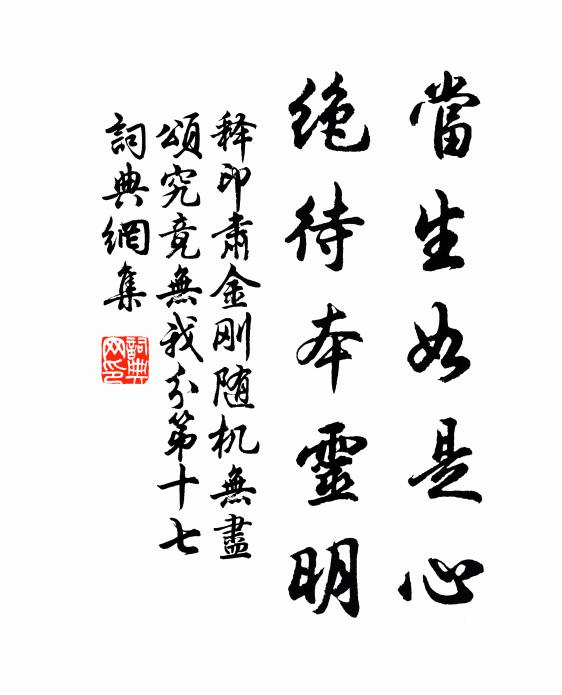 當生如是心
絶待本靈明
释印肅金剛随机無盡
頌究竟無我分第十七
詞典網集
詞典网印